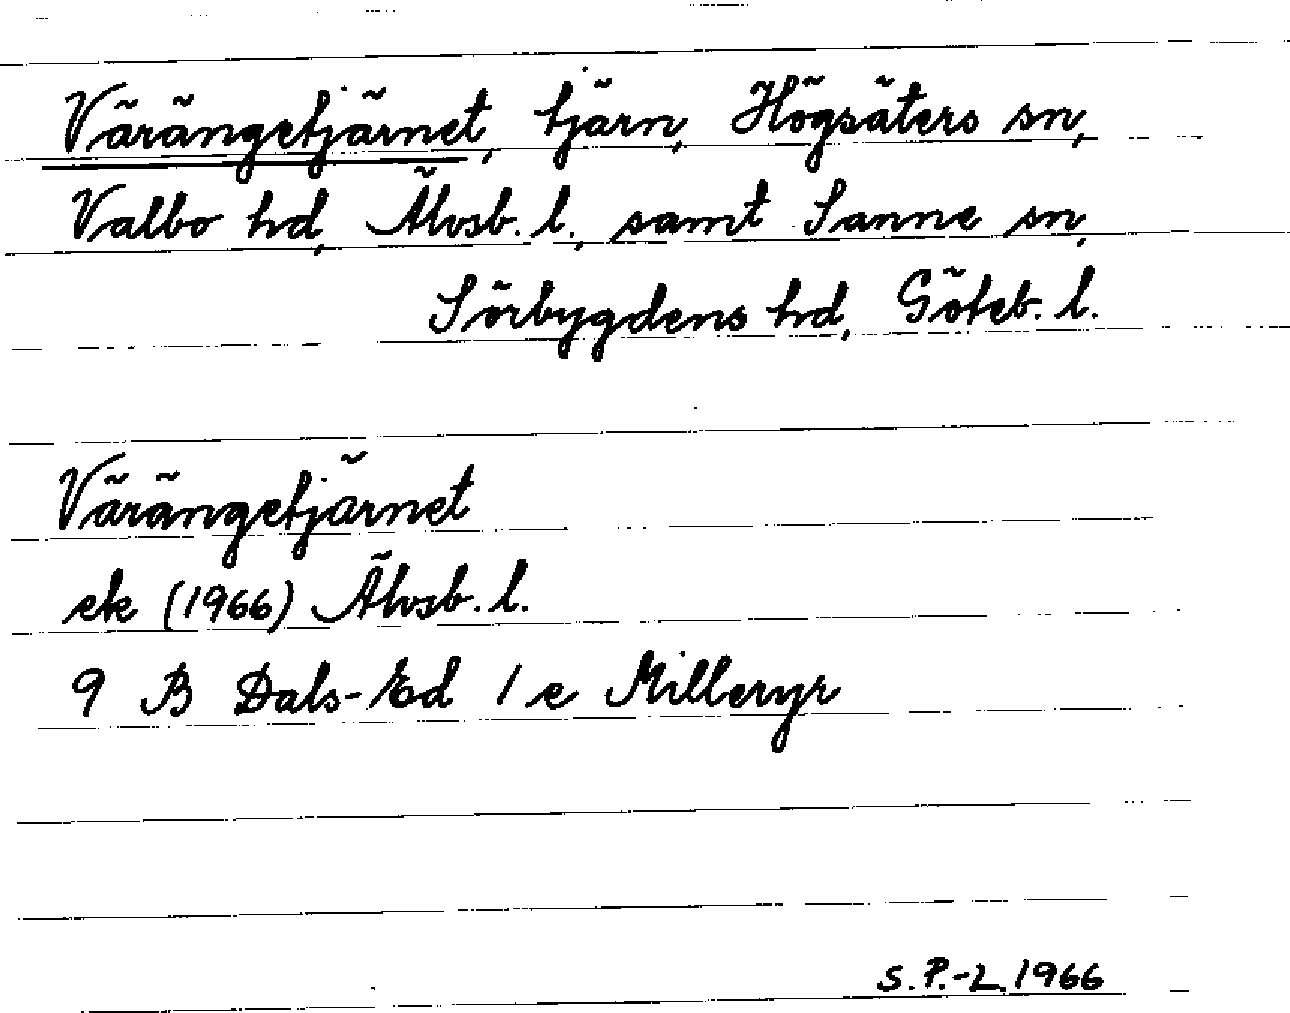 Värängetjärnet, tjärn, Högsäters sn,
Valbo hd, Älvsb. l., samt Sanne sn,
Sörbygdens hd, Göteb. l.
Värängetjärnet
ek (1966) Älvsb. l.
9 B Dals-Ed 1 e Milleryr
S. P.-L. 1966